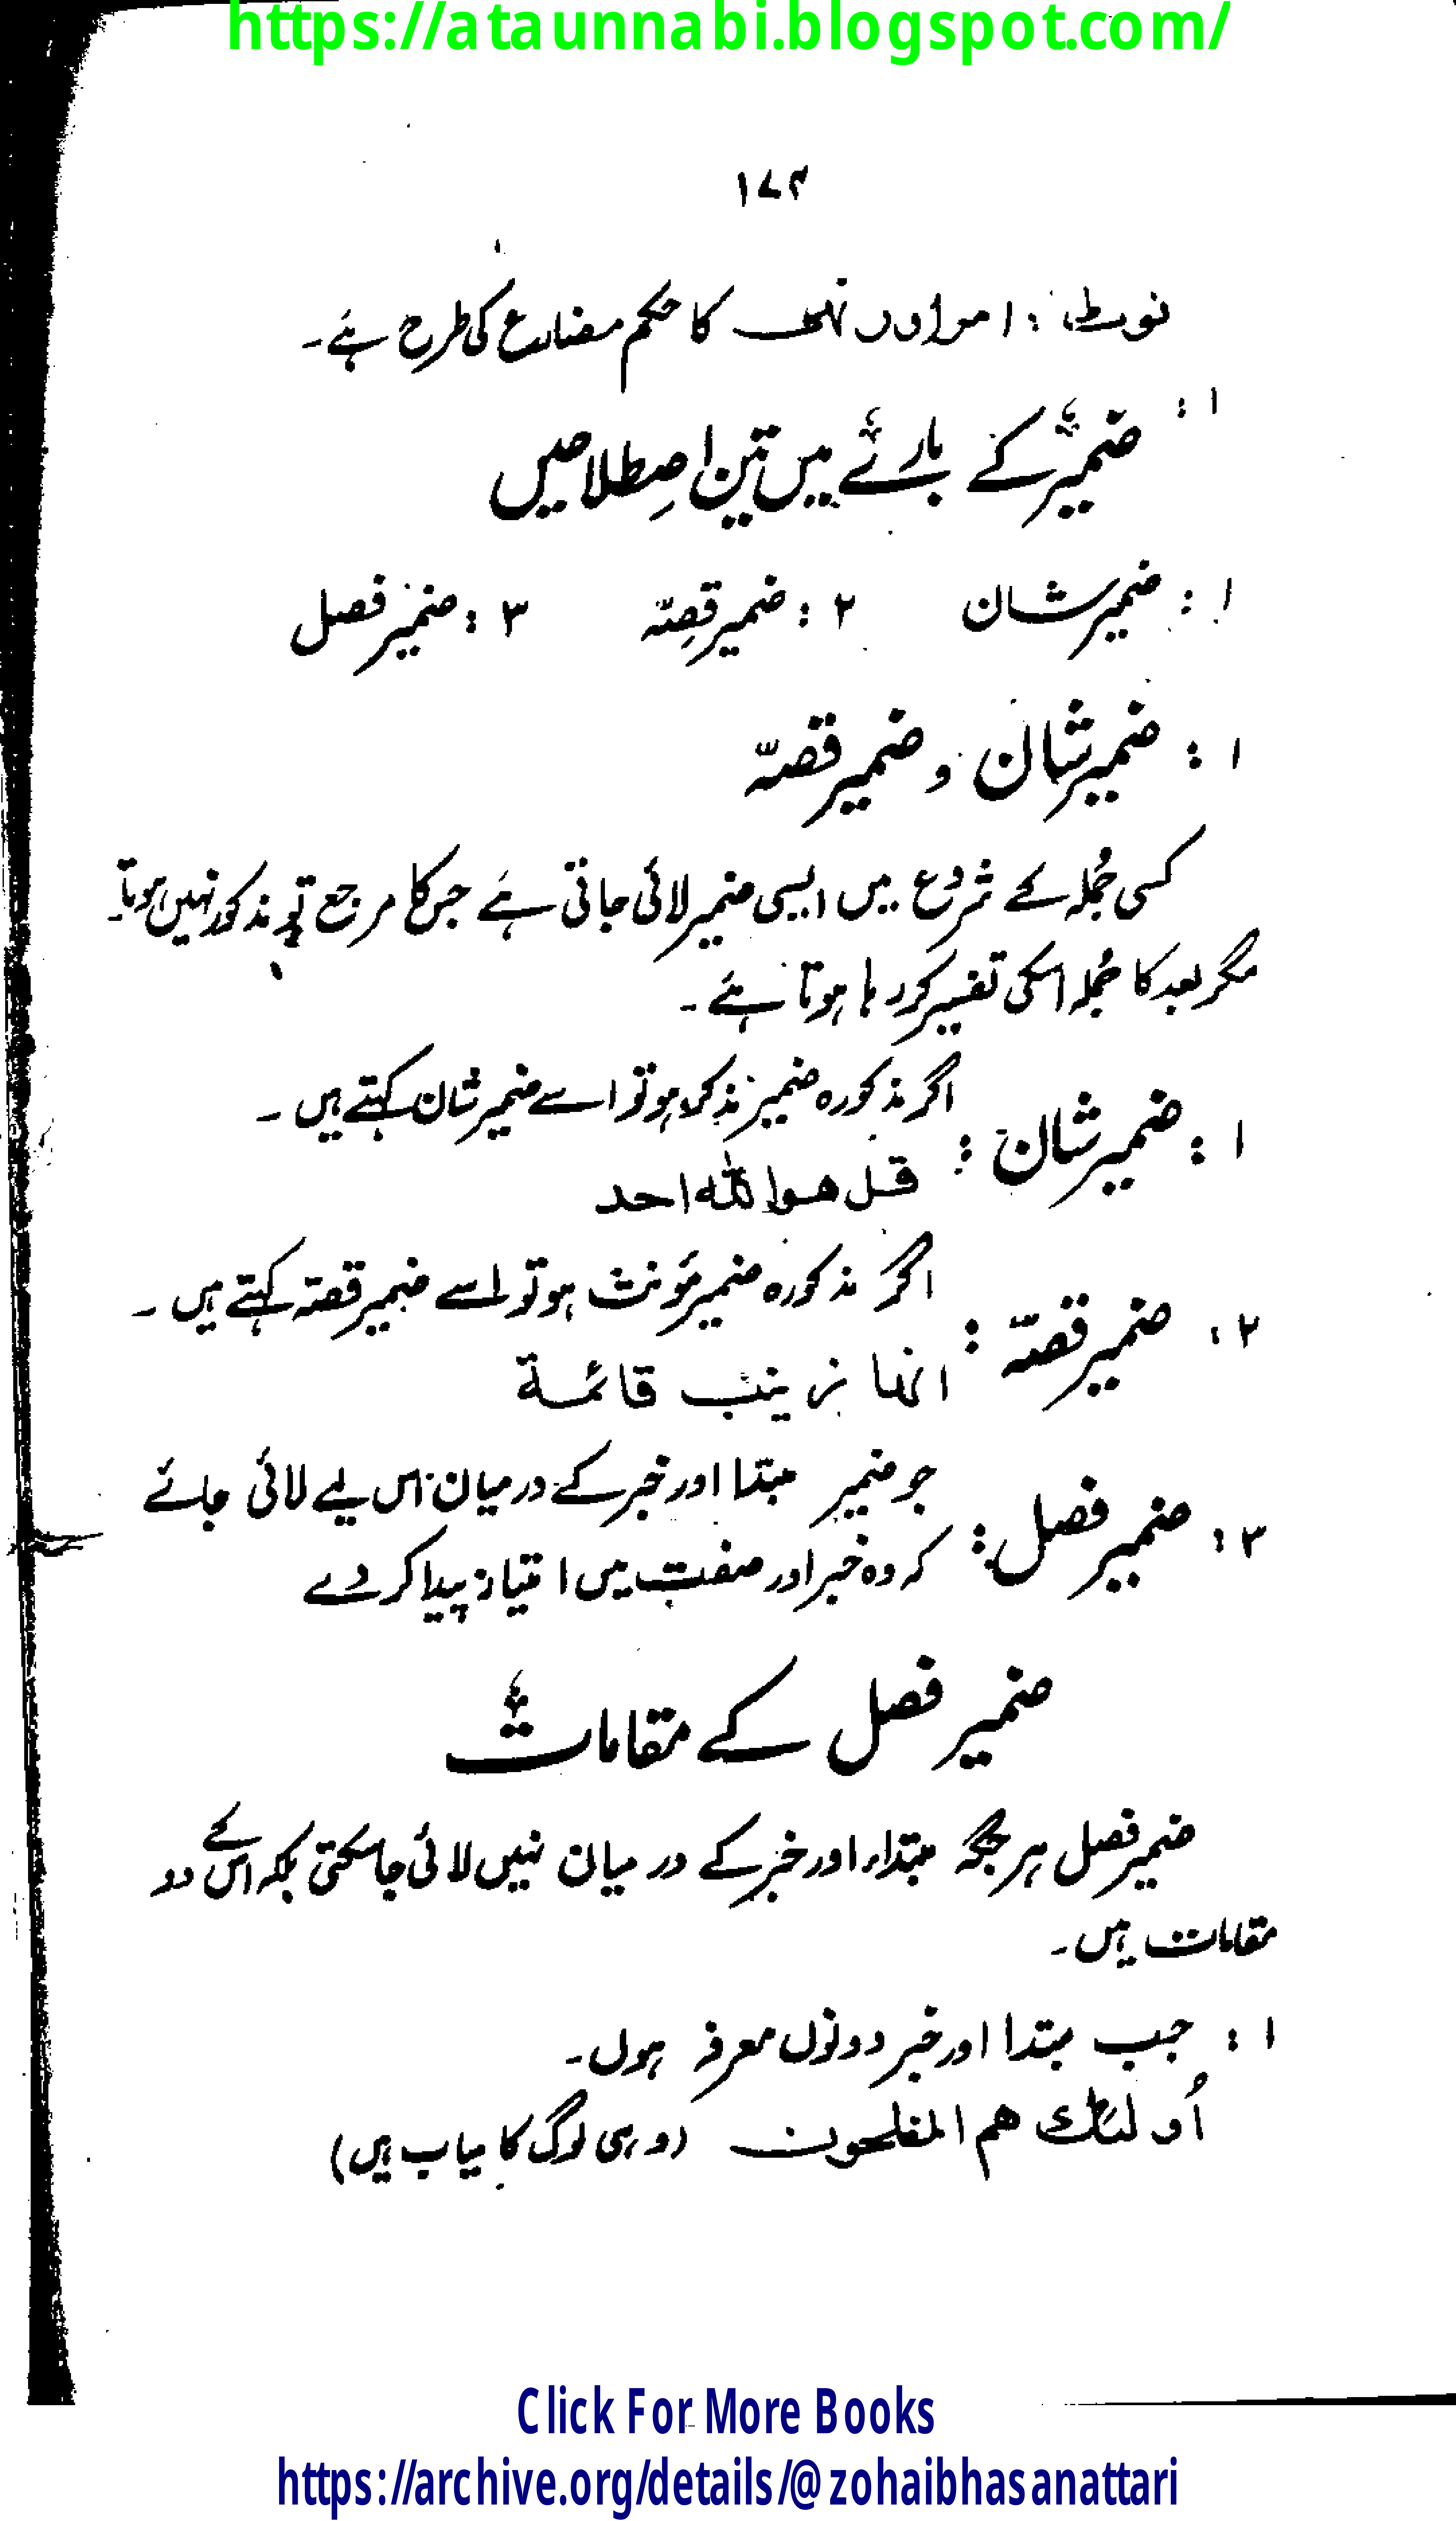 https://ataunnabi.blogspot.com/
۱۷۴
نوٹ : امر اور نہی کا حکم مضارع کی طرح ہے۔
۱: ضمیر کے بارے میں تین اصطلاحیں
۱: ضمیر شان ۲: ضمیر قصّہ ۳: ضمیر فصل
۱: ضمیر شان و ضمیر قصّہ
کسی جُملہ کے شروع میں ایسی ضمیر لائی جاتی ہے جس کا مرجع تو مذکور نہیں ہوتا۔
مگر بعد کا جُملہ اسکی تفسیر کر رہا ہوتا ہے۔
۱: ضمیر شان : اگر مذکورہ ضمیر مذکر ہو تو اسے ضمیر شان کہتے ہیں۔
قل هو الله احد
۲: ضمیر قصّہ : اگر مذکورہ ضمیر مؤنث ہو تو اسے ضمیر قصّہ کہتے ہیں۔
انها زينب قائمة
۳: ضمیر فصل : جو ضمیر مبتدا اور خبر کے درمیان اس لیے لائی جائے
کہ وہ خبر اور صفت میں امتیاز پیدا کر دے
ضمیر فصل کے مقامات
ضمیر فصل ہر جگہ مبتداء اور خبر کے درمیان نہیں لائی جا سکتی بلکہ اس کے دو
مقامات ہیں۔
۱: جب مبتدا اور خبر دونوں معرفہ ہوں۔
أولئك هم المفلحون (وہی لوگ کامیاب ہیں)
Click For More Books
https://archive.org/details/@zohaibhasanattari